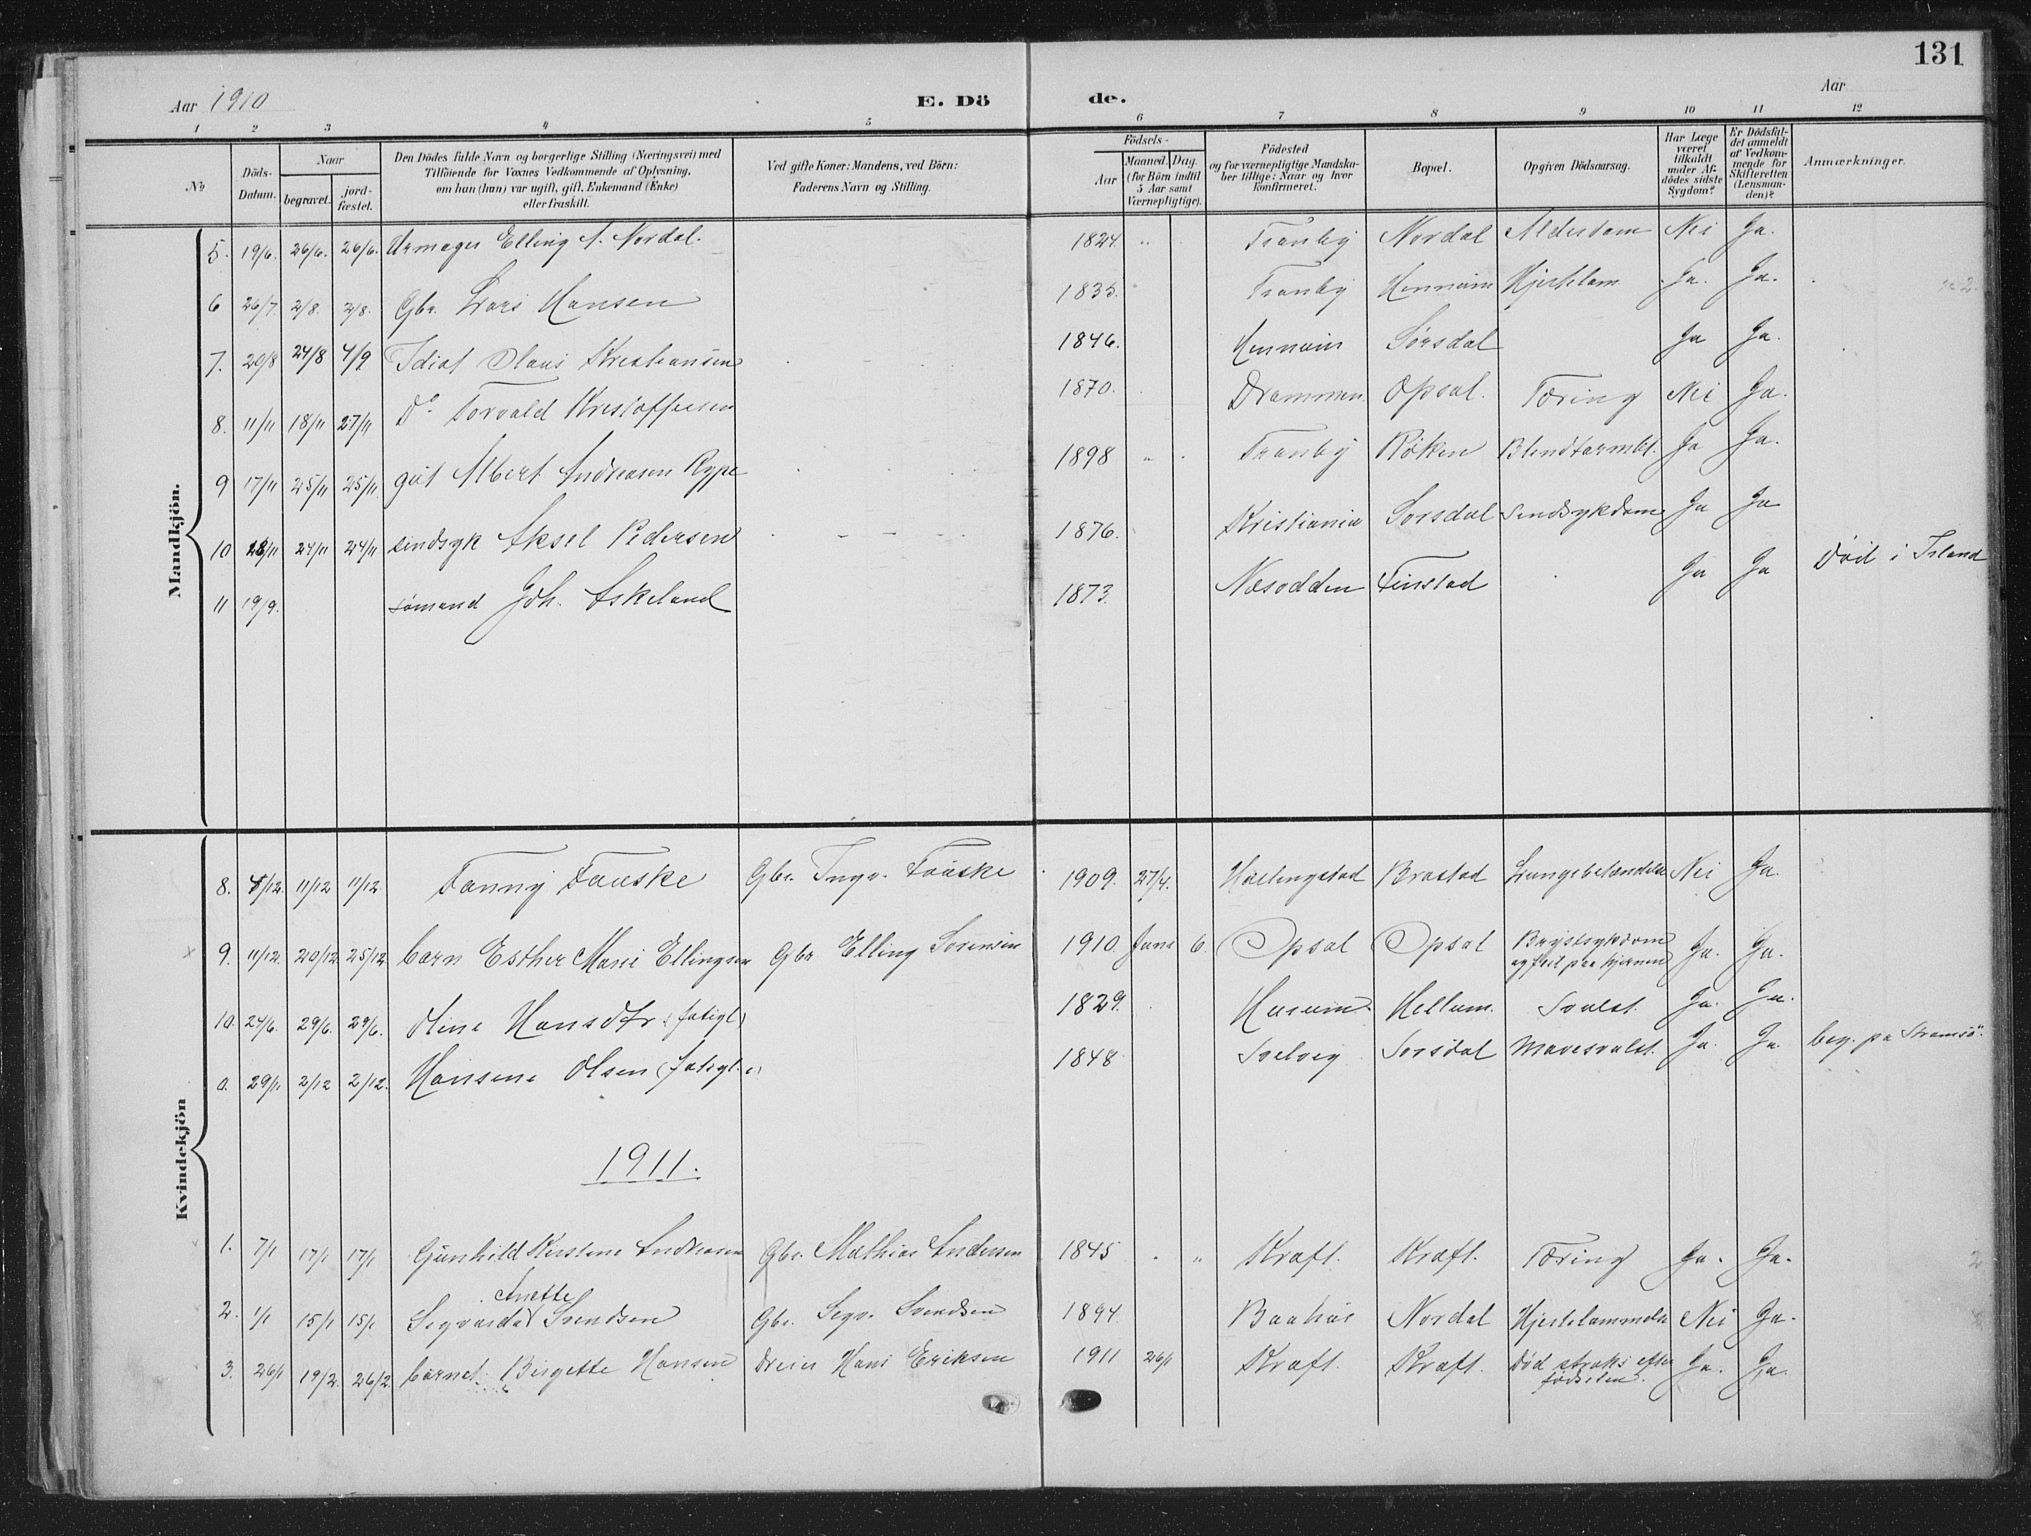 131
Aar 1910 E. Dö de. Aar
1 2 3 4 5 6 7 8 9 10 11 12
No
Döds-Datum.
Naar
begravet.
jord-fæstet.
Den Dödes fulde Navn og borgerlige Stilling (Næringsvei) med
Tilföiende for Voxnes Vedkommende af Oplysning,
om han (hun) var ugift, gift, Enkemand (Enke)
eller fraskilt.
Ved gifte Koner: Mandens, ved Börn:
Faderens Navn og Stilling.
Födsels-
Aar
Maaned. Dag.
(for Börn indtil
5 Aar samt
Værnepligtige).
Födested
og for værnepligtige Mandska-
ber tillige: Naar og hvor
konfirmeret.
Bopæl.
Opgiven Dödsaarsag.
Har Læge
været
tilkaldt
under Af-
dödes sidste
Sygdom?
Er Dödsfal-
det anmeldt
af Vedkom-
mende for
Skifteretten
(Lensman-
den)?
Anmærkninger.
Mandkjön.
5. 19/6. 26/6. 26/6. Urmager Elling A. Nordal. 1824. Tranby Nordal Alderdom Nei Ja.
6 26/7. 2/8. 2/8. Gbr. Lars Hansen 1835. Tranby Hennum Hjertelam Ja. Ja.
7. 20/8 24/8 4/9 Idiot Olaus Kristiansen 1846. Hennum Sørsdal Ja Ja.
8. 11/11 18/11 27/11 Do Torvald Kristoffersen 1870. Drammen. Opsal. Tæring Nei Ja.
9 17/11 25/11 25/11. gut Albert Andreasen Rype 1898 Tranby Røken Blindtarmbt. Ja Ja.
10 18/11 24/11 24/11 sindsyk Aksel Pedersen 1876. Kristiania Sørsdal Sindsykdom Ja Ja
11 19/9. sømand Joh. Askeland 1873. Næsodden Finstad Ja Ja Död i Island
Kvindekjön
8. 4/12. 11/12 11/12. Fanny Fauske Gbr. Ingv. Fauske 1909. 27/4. Hallingstad Brastad Lungebetændelse Nei Ja.
9. 11/12. 20/12 25/12 barn Esther Marie Ellingsen Gbr Elling Sørensen 1910. Juni 6. Opsal Opsal Brystsykdom
og feil paa hjernen Ja. Ja.
10. 24/6. 29/6. 29/6. Oline Hansdtr (fatigl.) 1829. Hurum Hellum. Svulst. Ja. Ja.
29/11 2/12 2/12. Hansine Olsen (fatigl.) 1848. Svelvig Sørsdal Mavesvulst. Ja. Ja beg. pa Strømsö.
1911.
1. 7/1 17/1 17/1 Gunhild Kirstine Andreasen Gbr. Mathias Andersen 1845 Kraft. Kraft. Tæring Ja. Ja.
Anette
2. 1/1 15/1 15/1 Sigvarda Svendsen Gbr. Sigv. Svendsen 1894. Nordal Hjertelammelse Nei Ja.
3. 26/1 19/2. 26/2. barnet Birgette Hansen Dreier Hans Eriksen 1911 26/1 Kraft. Kraft. Död straks efter
födselen. Ja. Ja.